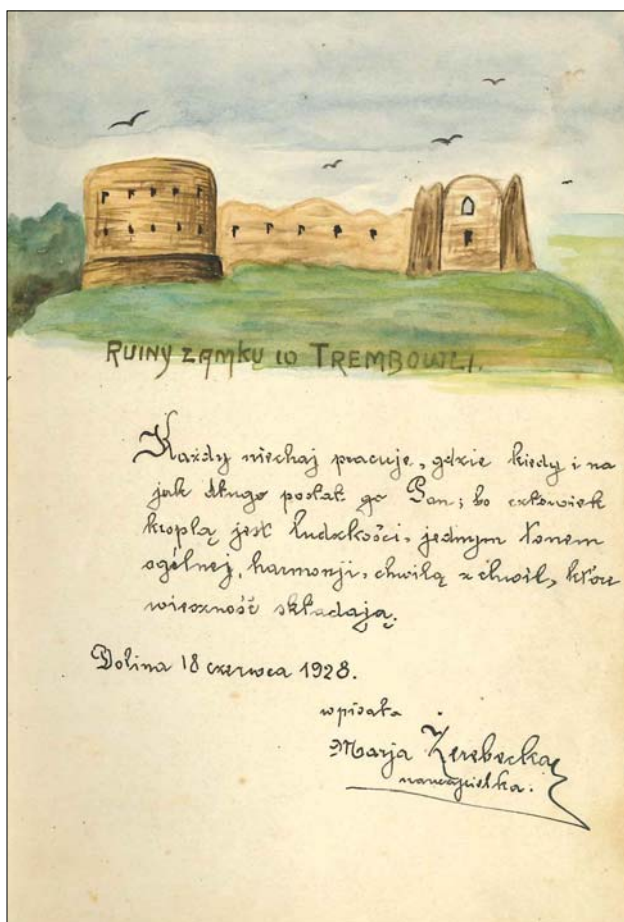 RUINY ZAMKU W TREMBOWLI.
Każdy niechaj pracuje, gdzie kiedy i na
jak długo posłał go Pan; bo człowiek
kroplą jest ludzkości, jednym tonem
ogólnej, harmonji, chwilą z chwil, które
wieczność składają.
Dolina 18 czerwca 1928.
wpisała
Marja Żerebecka
nauczycielka.